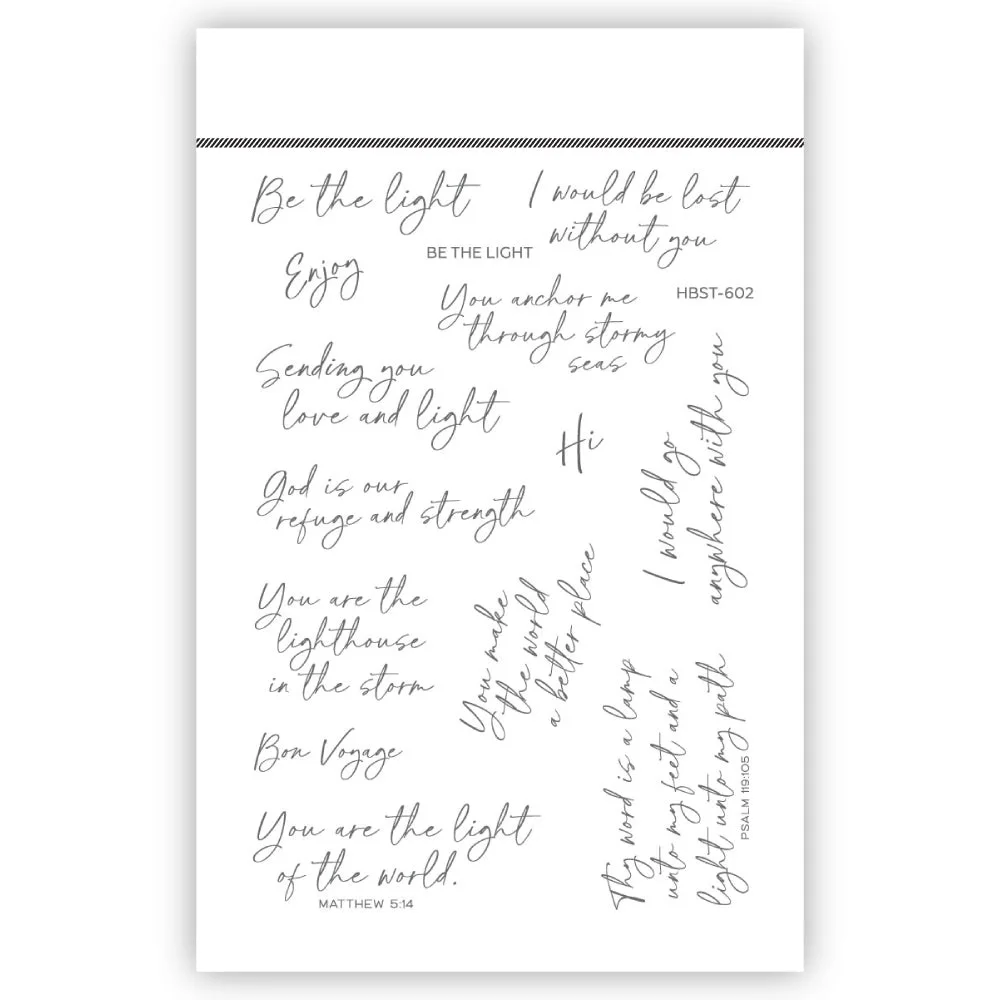 Be the light
I would be lost
without you
BE THE LIGHT
Enjoy
HBST-602
You anchor me
through stormy
seas
Sending you
love and light
Hi
I would go
anywhere with you
God is our
refuge and strength
You are the
lighthouse
in the storm
You make
the world
a better place
Thy word is a lamp
unto my feet and a
light unto my path
PSALM 119:105
Bon Voyage
You are the light
of the world.
MATTHEW 5:14